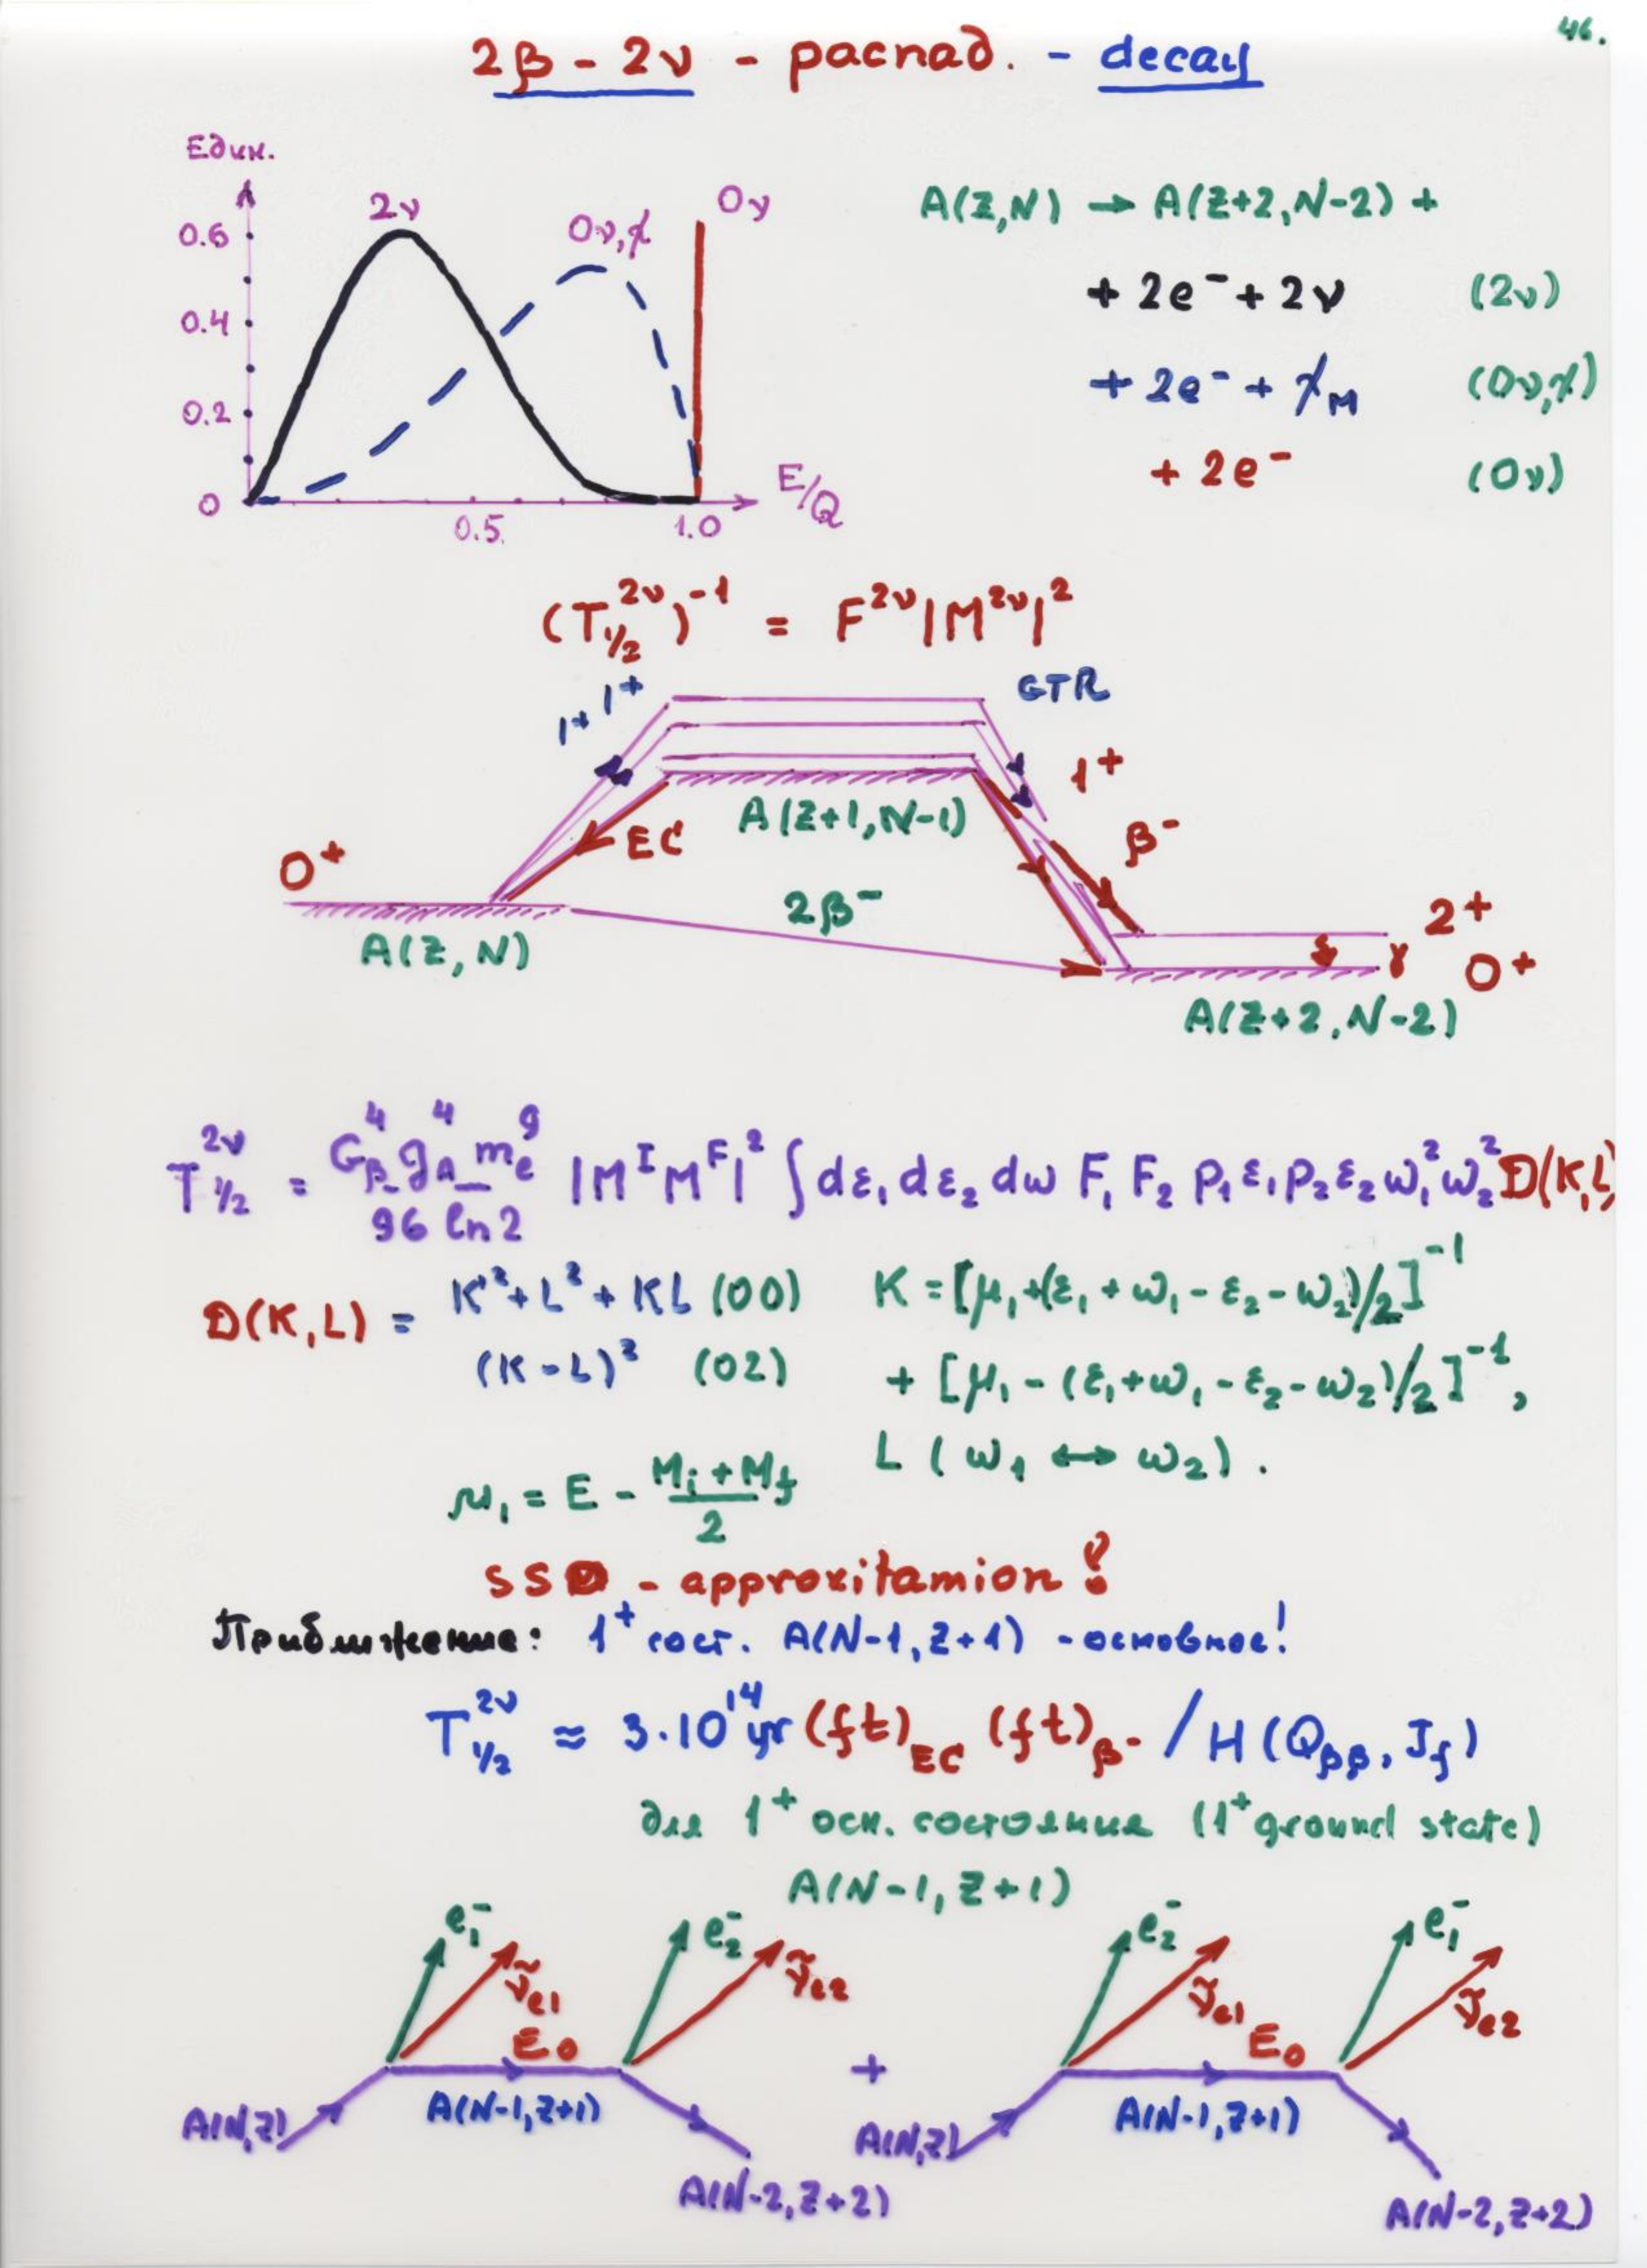 46.
2β - 2ν - распад. - decay
Един.
0.6
0.4
0.2
0
0.5
1.0
E/Q
2ν
0ν,χ
0ν
A(Z,N) → A(Z+2,N-2) +
+ 2e⁻ + 2ν (2ν)
+ 2e⁻ + χ_M (0ν,χ)
+ 2e⁻ (0ν)
(T_{1/2}^{2ν})^{-1} = F^{2ν}|M^{2ν}|^2
1⁺ 1⁺
GTR
1⁺
A(Z+1,N-1)
EC
β⁻
0⁺
2β⁻
A(Z,N)
2⁺
γ 0⁺
A(Z+2,N-2)
T_{1/2}^{2ν} = G_β^4 g_A^4 m_e^9 / 96 ln2 |M^I M^F|^2 ∫ dε₁ dε₂ dω F₁ F₂ p₁ ε₁ p₂ ε₂ ω₁² ω₂² D(K,L)
D(K,L) = K²+L²+KL (00)
(K-L)² (02)
K = [μ₁+(ε₁+ω₁-ε₂-ω₂)/2]^{-1}
+ [μ₁-(ε₁+ω₁-ε₂-ω₂)/2]^{-1},
L (ω₁ ↔ ω₂).
μ₁ = E - (M_i + M_f)/2
SSD - approxitamion?
Приближение: 1⁺ сост. A(N-1,Z+1) - основное!
T_{1/2}^{2ν} ≈ 3·10^{14} yr (ft)_{EC} (ft)_{β⁻} / H(Q_{ββ}, J_f)
для 1⁺ осн. состояния (1⁺ ground state)
A(N-1,Z+1)
e₁⁻
ν̃_{e1}
e₂⁻
ν̃_{e2}
E₀
A(N,Z)
A(N-1,Z+1)
A(N-2,Z+2)
+
e₂⁻
ν̃_{e1}
e₁⁻
ν̃_{e2}
E₀
A(N,Z)
A(N-1,Z+1)
A(N-2,Z+2)